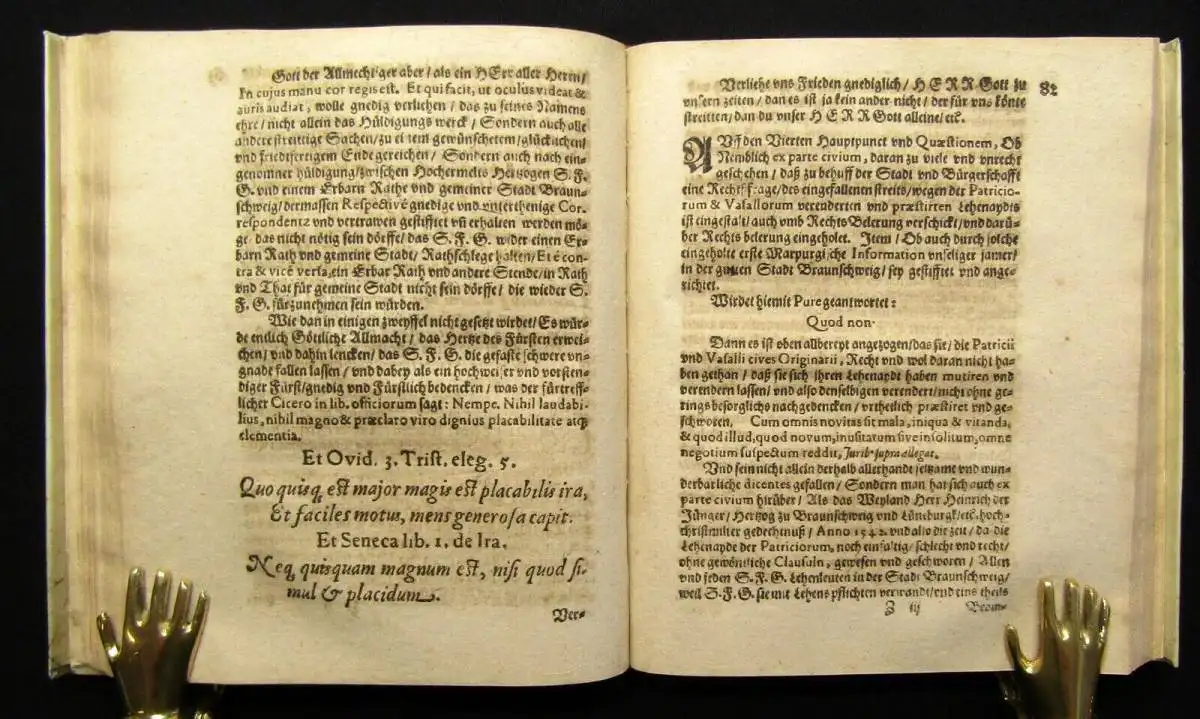 Gott der Allmechtiger aber / als ein HErr aller Herrn /
In cujus manu cor regis est. Et qui facit, ut oculus videat &
auris audiat, wolle gnedig verlichen / das zu seines Namens
ehre / nicht allein das Hüldigungs werck / Sondern auch alle
andere streittige Sachen / zu einem gewünschetem / glücklichen /
und friedfertigem Ende gereichen / Sondern auch nach ein-
genomner hüldigung / zwischen Hochermelts Hertzogen S. F.
G. vnd einem Erbarn Rathe vnd gemeiner Stadt Braun-
schweig / dermassen Respectivè gnedige vnd vnterthenige Cor-
respondentz vnd vertrawen gestifftet vñ erhalten werden mö-
ge / das nicht nötig sein dörffe / das S. F. G. wider einen Er-
barn Rath vnd gemeine Stadt / Rathschlege halten / Et è con-
tra & vicè versa, ein Erbar Rath vnd andere Stende / in Rath
vnd That für gemeine Stadt nicht sein dörffe / die wieder S.
F. G. fürzunehmen sein würden.
Wie dan in einigen zweyffel nicht gesetzt wirdet / Es wür-
de entlich Göttliche Allmacht / das Hertze des Fürsten erwei-
chen / vnd dahin lencken / das S. F. G. die gefaste schwere vn-
gnade fallen lassen / vnd dabey als ein hochweiser vnd vorsten-
diger Fürst / gnedig vnd Fürstlich bedencken / was der fürtreff-
licher Cicero in lib. officiorum sagt: Nempe. Nihil laudabi-
lius, nihil magno & præclaro viro dignius placabilitate atq;
clementia.
Et Ovid. 3. Trist. eleg. 5.
Quo quisq; est major magis est placabilis ira,
Et faciles motus, mens generosa capit.
Et Seneca lib. 1. de Ira.
Neq; quisquam magnum est, nisi quod si-
mul & placidum.
Ver-
Verliehe vns Frieden gnediglich / HERR Gott zu
vnsern zeiten / dan es ist ja kein ander nicht / der für vns könte
streitten / dan du vnser HERR Gott alleine / etc.
82
AVff den Vierten Hauptpunct vnd Quæstionem, Ob
Nemblich ex parte civium, daran zu viele vnd vnrecht
geschehen / daß zu behuff der Stadt vnd Bürgerschafft
eine Rechtsfrage / des eingefallenen streits / wegen der Patricio-
rum & Vasallorum verenderten vnd præstirten Lehenaydts
ist eingestalt / auch vmb Rechts Belerung verschickt / vnd darü-
ber Rechts belerung eingeholet. Item / Ob auch durch solche
eingeholte erste Marpurgische Information vnseliger jamer /
in der guten Stadt Braunschweig / sey gestifftet vnd ange-
richtet.
Wirdet hiemit Pure geantwortet:
Quod non.
Dann es ist oben allbereyt angezogen / das sie / die Patricii
vnd Vasalli cives Originarii, Recht vnd wol daran nicht ha-
ben gethan / daß sie sich ihren Lehenaydt haben mutiren vnd
verendern lassen / vnd also denselbigen verendert / nicht ohne ge-
rings besorglichs nachgedencken / vrtheilich præstiret vnd ge-
schworen. Cum omnis novitas sit mala, iniqua & vitanda,
& quod illud, quod novum, inusitatum sive insolitum, omne
negotium suspectum reddit, Jurib. supra allegat.
Vnd sein nicht allein derhalb allerhandt seltzame vnd wun-
derbarliche dicentes gefallen / Sondern man hat sich auch ex
parte civium hirüber / Als das Weyland Herr Heinrich der
Jünger / Hertzog zu Braunschweig vnd Lüneburgk / etc. hoch-
christmilter gedechtnuß / Anno 1542. vnd also die zeit / da die
Lehenayde der Patriciorum, noch einfaltig / schlecht vnd recht /
ohne gewönliche Clausuln, gewesen vnd geschworen / Allen
vnd jeden S. F. G. Lehenleuten in der Stadt Braunschweig /
weil S. F. G. sie mit Lehens pflichten verwandt / vnd eins theils
Z iij